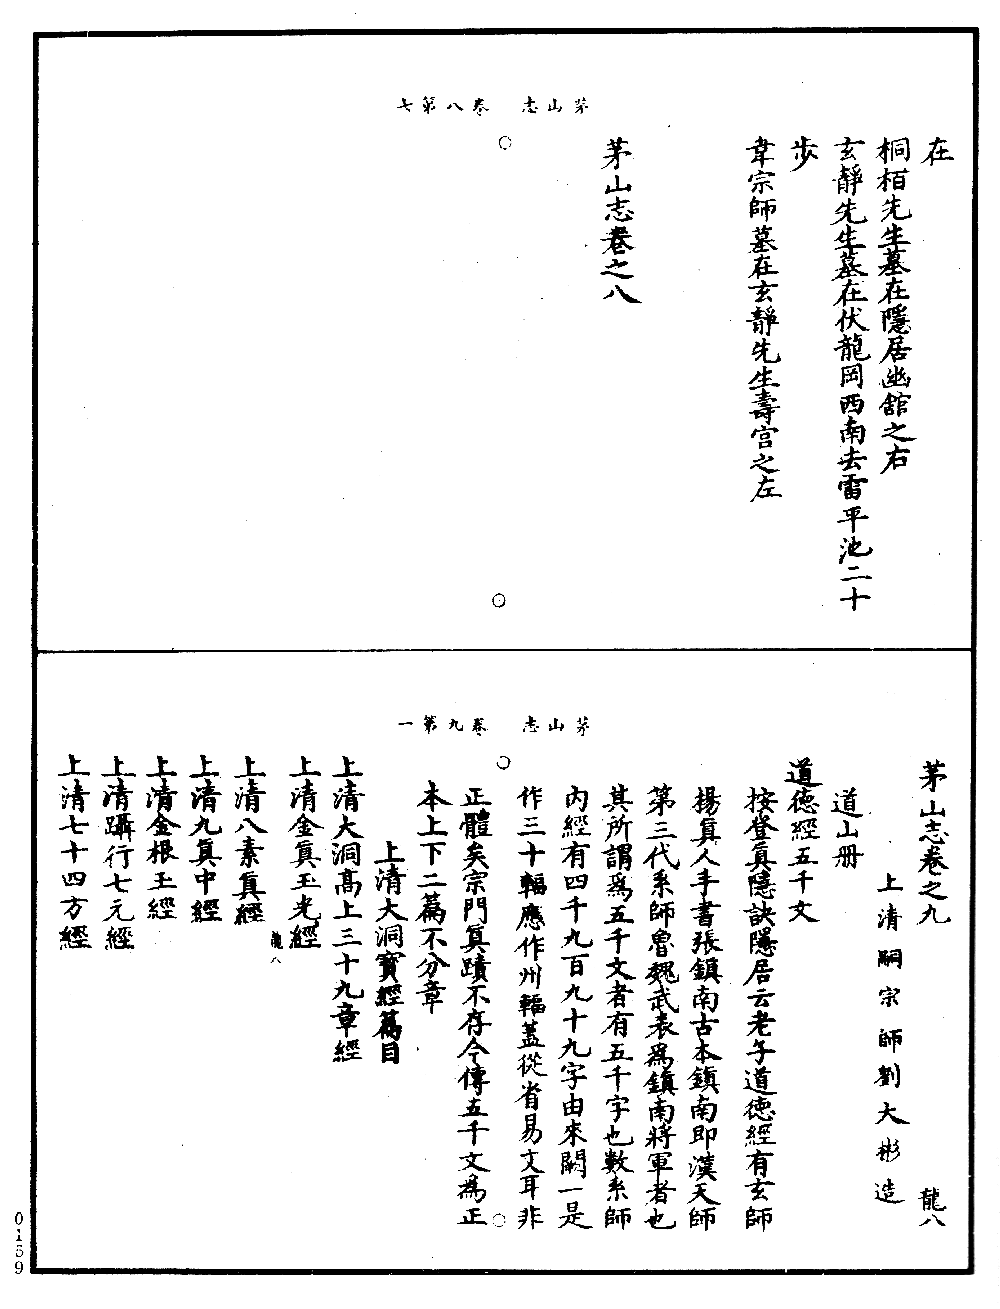 茅山志　卷八第七
在
桐栢先生墓在隱居幽舘之右
玄靜先生墓在伏龍岡西南去雷平池二十
步
韋宗師墓在玄靜先生壽宫之左
茅山志卷之八
茅山志　卷九第一
茅山志卷之九　龍八
上清嗣宗師劉大彬造
道山册
道德經五千文
按登真隱訣隱居云老子道德經有玄師
揚真人手書張鎮南古本鎮南即漢天師
第三代系師魯魏武表爲鎮南將軍者也
其所謂爲五千文者有五千字也數系師
内經有四千九百九十九字由來闕一是
作三十輻應作卅輻蓋從省易文耳非
正體矣宗門真蹟不存今傳五千文爲正
本上下二篇不分章
上清大洞寶經篇目
上清大洞高上三十九章經
上清金真玉光經
龍八
上清八素真經
上清九真中經
上清金根玉經
上清躡行七元經
上清七十四方經
0159